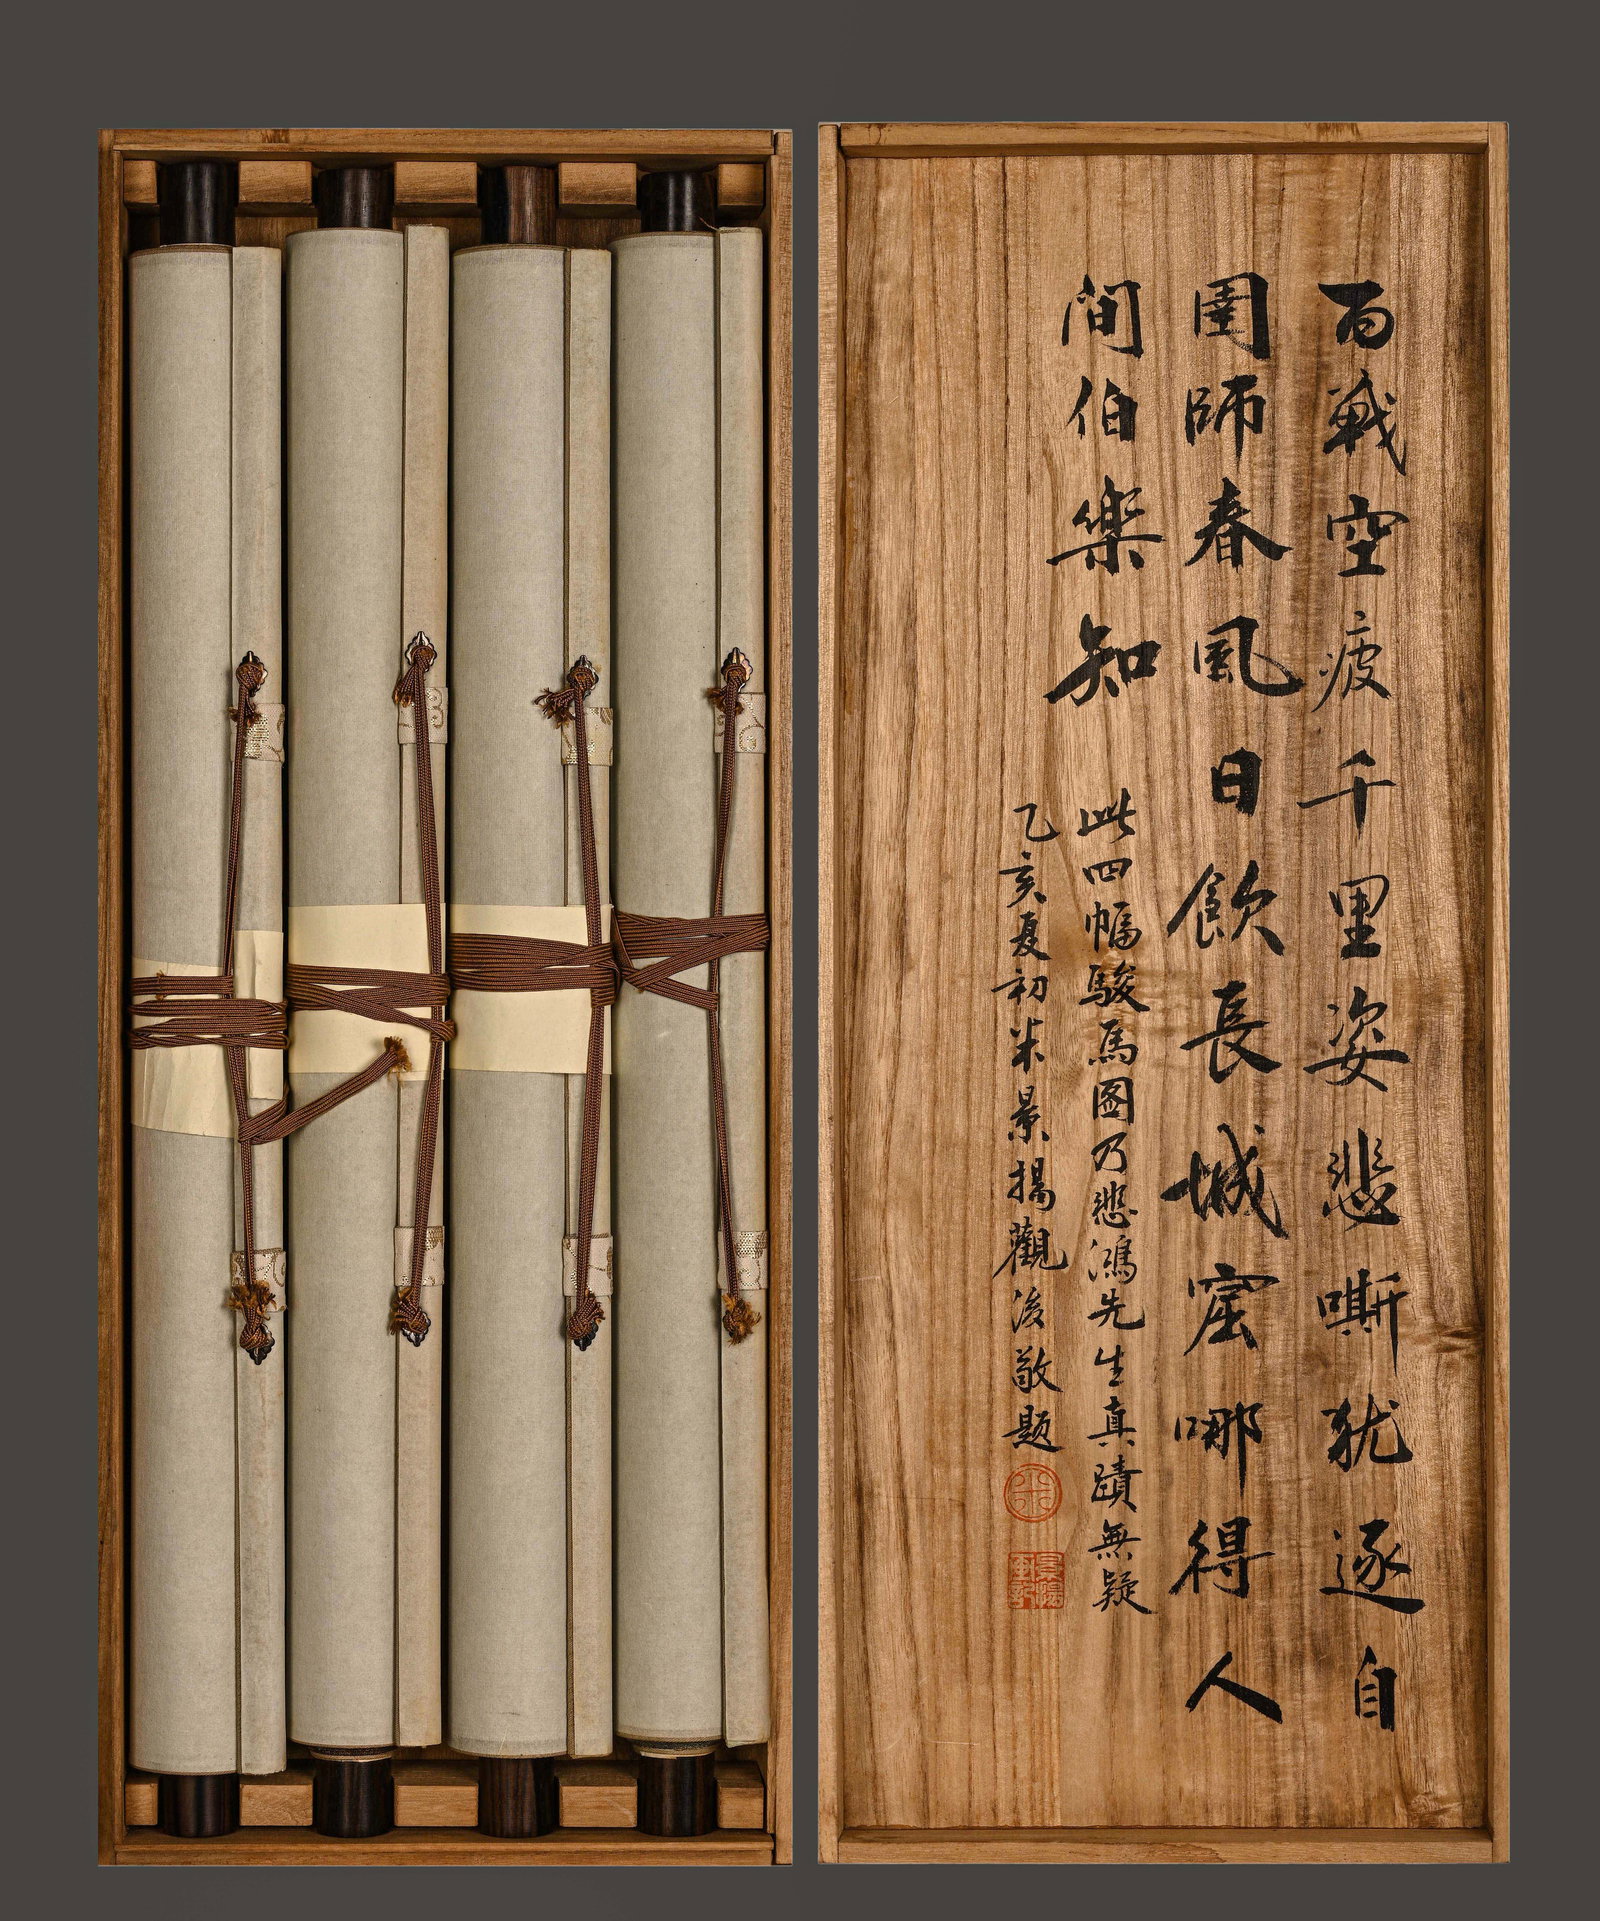 百戰空疲千里姿悲嘶犹逐自
圉師春風日飲長城窟哪得人
間伯樂知
此四幅駿馬图乃悲鴻先生真蹟無疑
乙亥夏初米景揚觀後敬題
米